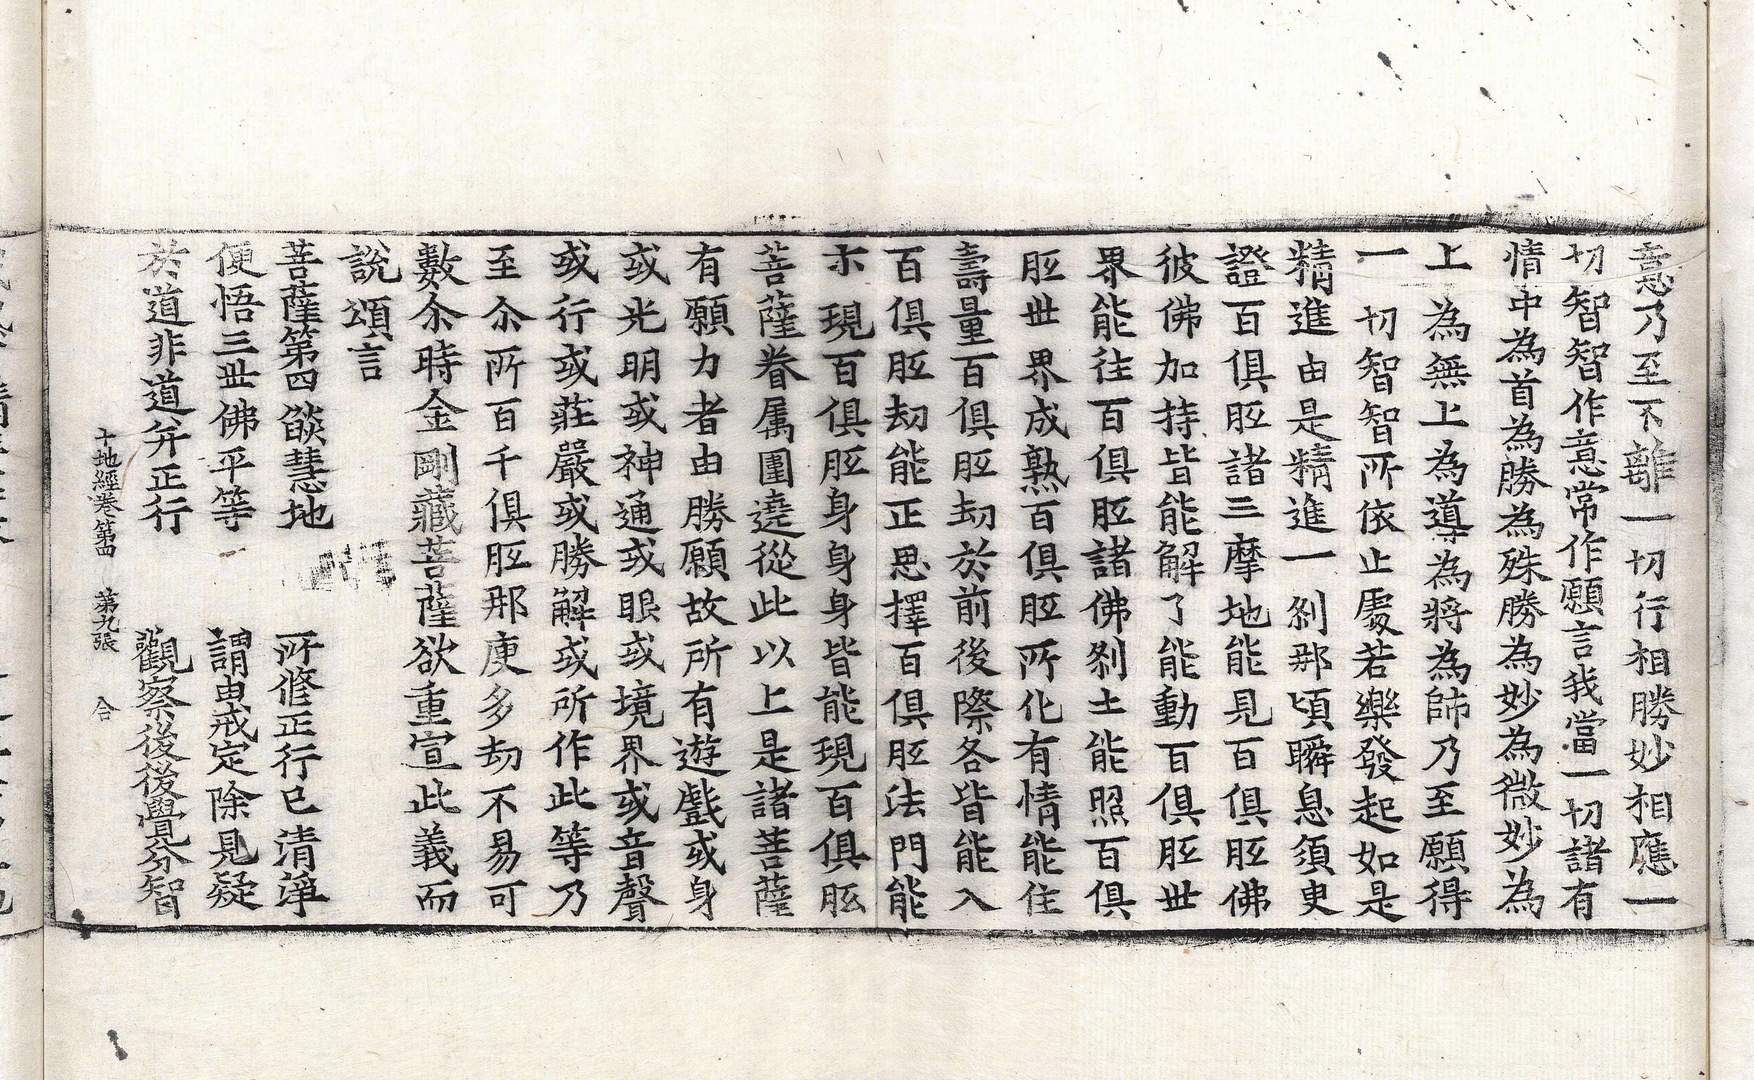 意乃至不離一切行相勝妙相應一
切智智作意常作願言我當一切諸有
情中為首為勝為殊勝為妙為微妙為
上為無上為導為將為帥乃至願得
一切智智所依止處若樂發起如是
精進由是精進一剎那頃瞬息須臾
證百俱胝諸三摩地能見百俱胝佛
彼佛加持皆能解了能動百俱胝世
界能往百俱胝諸佛剎土能照百俱
胝世界成熟百俱胝所化有情能住
壽量百俱胝劫於前後際各皆能入
百俱胝劫能正思擇百俱胝法門能
示現百俱胝身身身皆能現百俱胝
菩薩眷属圍遶從此以上是諸菩薩
有願力者由勝願故所有遊戲或身
或光明或神通或眼或境界或音聲
或行或莊嚴或勝解或所作此等乃
至尒所百千俱胝那庾多劫不易可
數尒時金剛藏菩薩欲重宣此義而
說頌言
菩薩第四燄慧地 所修正行已清淨
便悟三世佛平等 謂由戒定除見疑
於道非道并正行 觀察後後覺分智
十地經卷第四 第九張 合